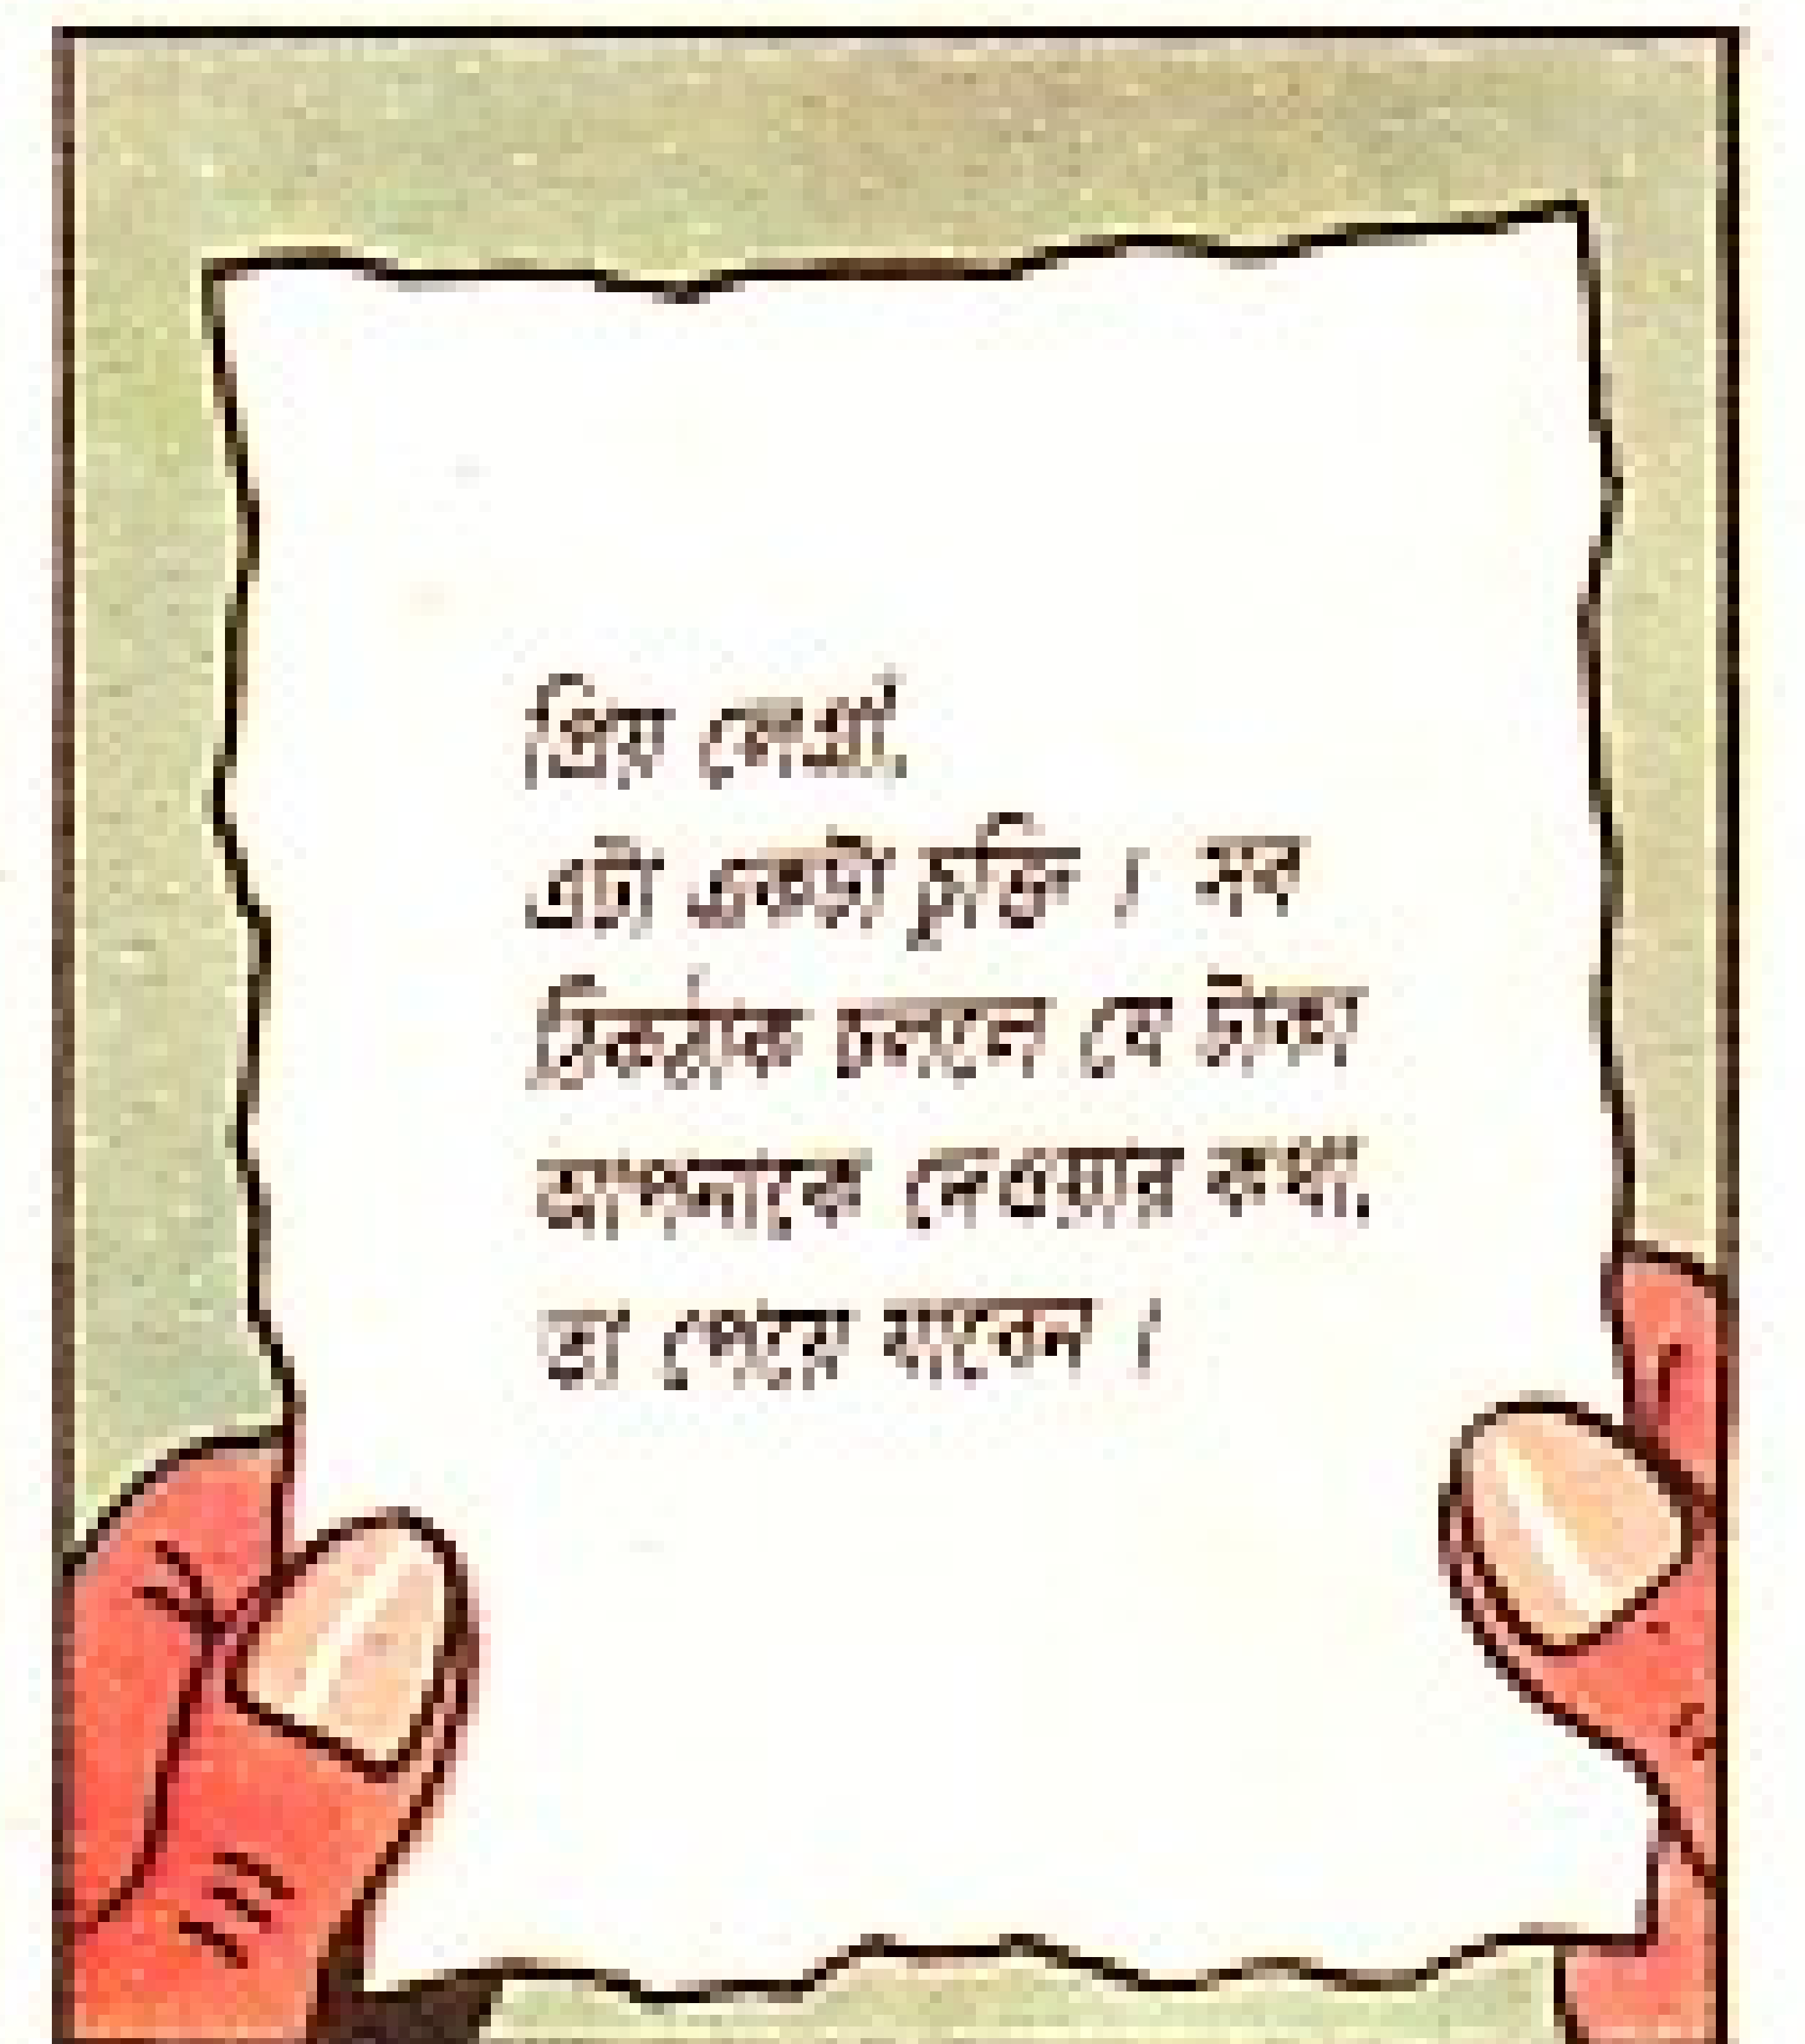 প্রিয়
এটা একটা চুক্তি । সব
ঠিকঠাক চললে যে টাকা
আপনাকে দেওয়ার কথা,
তা পেয়ে যাবেন ।